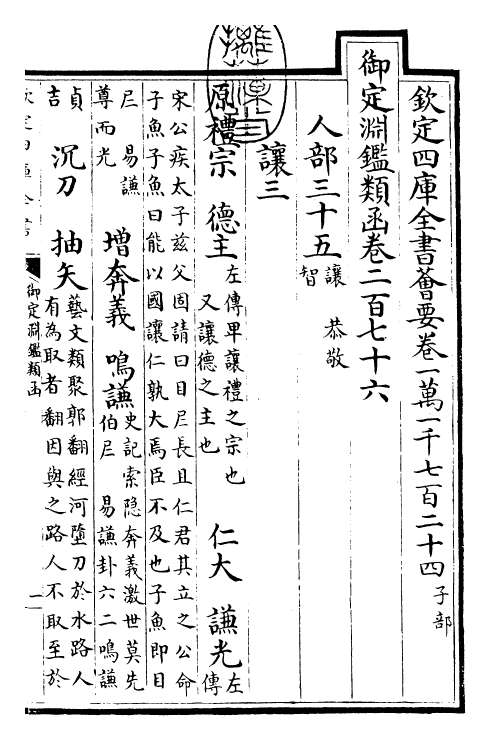 欽定四庫全書薈要卷一萬一千七百二十四 子部
御定淵鑑類函卷二百七十六
人部三十五 讓 恭敬
智
讓三
原禮宗 德主 左傳卑讓禮之宗也
又讓德之主也 仁大 謙光 左傳
宋公疾太子兹父固請曰目𡰥長且仁君其立之公命
子魚子魚曰能以國讓仁孰大焉臣不及也子魚即目
𡰥 易謙
尊而光 增奔義 鳴謙 史記索隐奔義激世莫先
伯𡰥 易謙卦六二鳴謙
貞
吉 沉刀 抽矢 藝文類聚郭翻經河墮刀於水路人
有為取者翻因與之路人不取至於
御定淵鑑類函
一